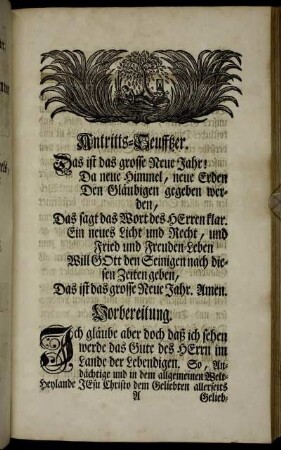 Antritts-Seufftzer.
Das ist das grosse Neue Jahr!
Da neue Himmel, neue Erden
Den Gläubigen gegeben wer-
den,
Das sagt das Wort des HErren klar.
Ein neues Licht und Recht, und
Fried und Freuden-Leben
Will GOtt den Seinigen nach die-
sen Zeiten geben,
Das ist das grosse Neue Jahr. Amen.
Vorbereitung.
Ich gläube aber doch daß ich sehen
werde das Gute des HErrn im
Lande der Lebendigen. So, An-
dächtige und in dem allgemeinen Welt-
Heylande JEsu Christo dem Geliebten allerseits
A Gelieb-